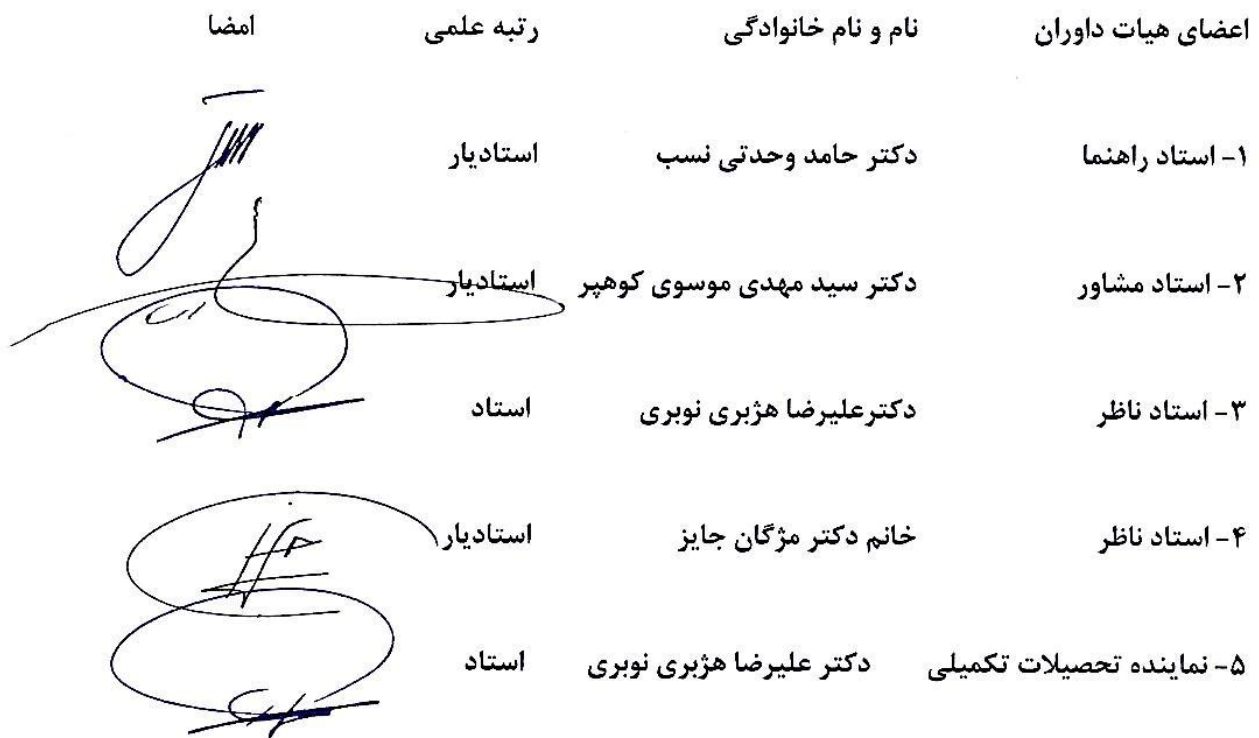 اعضای هیات داوران نام و نام خانوادگی رتبه علمی امضا
۱- استاد راهنما دکتر حامد وحدتی نسب استادیار
۲- استاد مشاور دکتر سید مهدی موسوی کوهپر استادیار
۳- استاد ناظر دکترعلیرضا هژبری نوبری استاد
۴- استاد ناظر خانم دکتر مژگان جایز استادیار
۵- نماینده تحصیلات تکمیلی دکتر علیرضا هژبری نوبری استاد